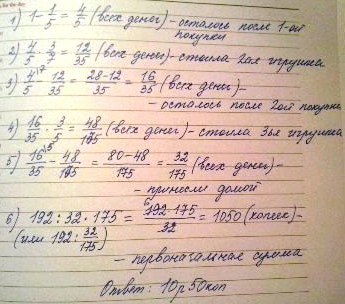 1) 1 - 1/5 = 4/5 (всех денег) - осталось после 1-ой
покупки
2) 4/5 · 3/7 = 12/35 (всех денег) - стоила 2ая игрушка
3) 4/5 - 12/35 = 28-12/35 = 16/35 (всех денег) -
- осталось после 2ой покупки
4) 16/35 · 3/5 = 48/175 (всех денег) - стоила 3ья игрушка
5) 16/35 - 48/175 = 80-48/175 = 32/175 (всех денег) -
- принесли домой
6) 192 : 32 · 175 = 192 · 175/32 = 1050 (копеек) -
(или 192 : 32/175)
- первоначальная сумма
Ответ: 10р 50коп